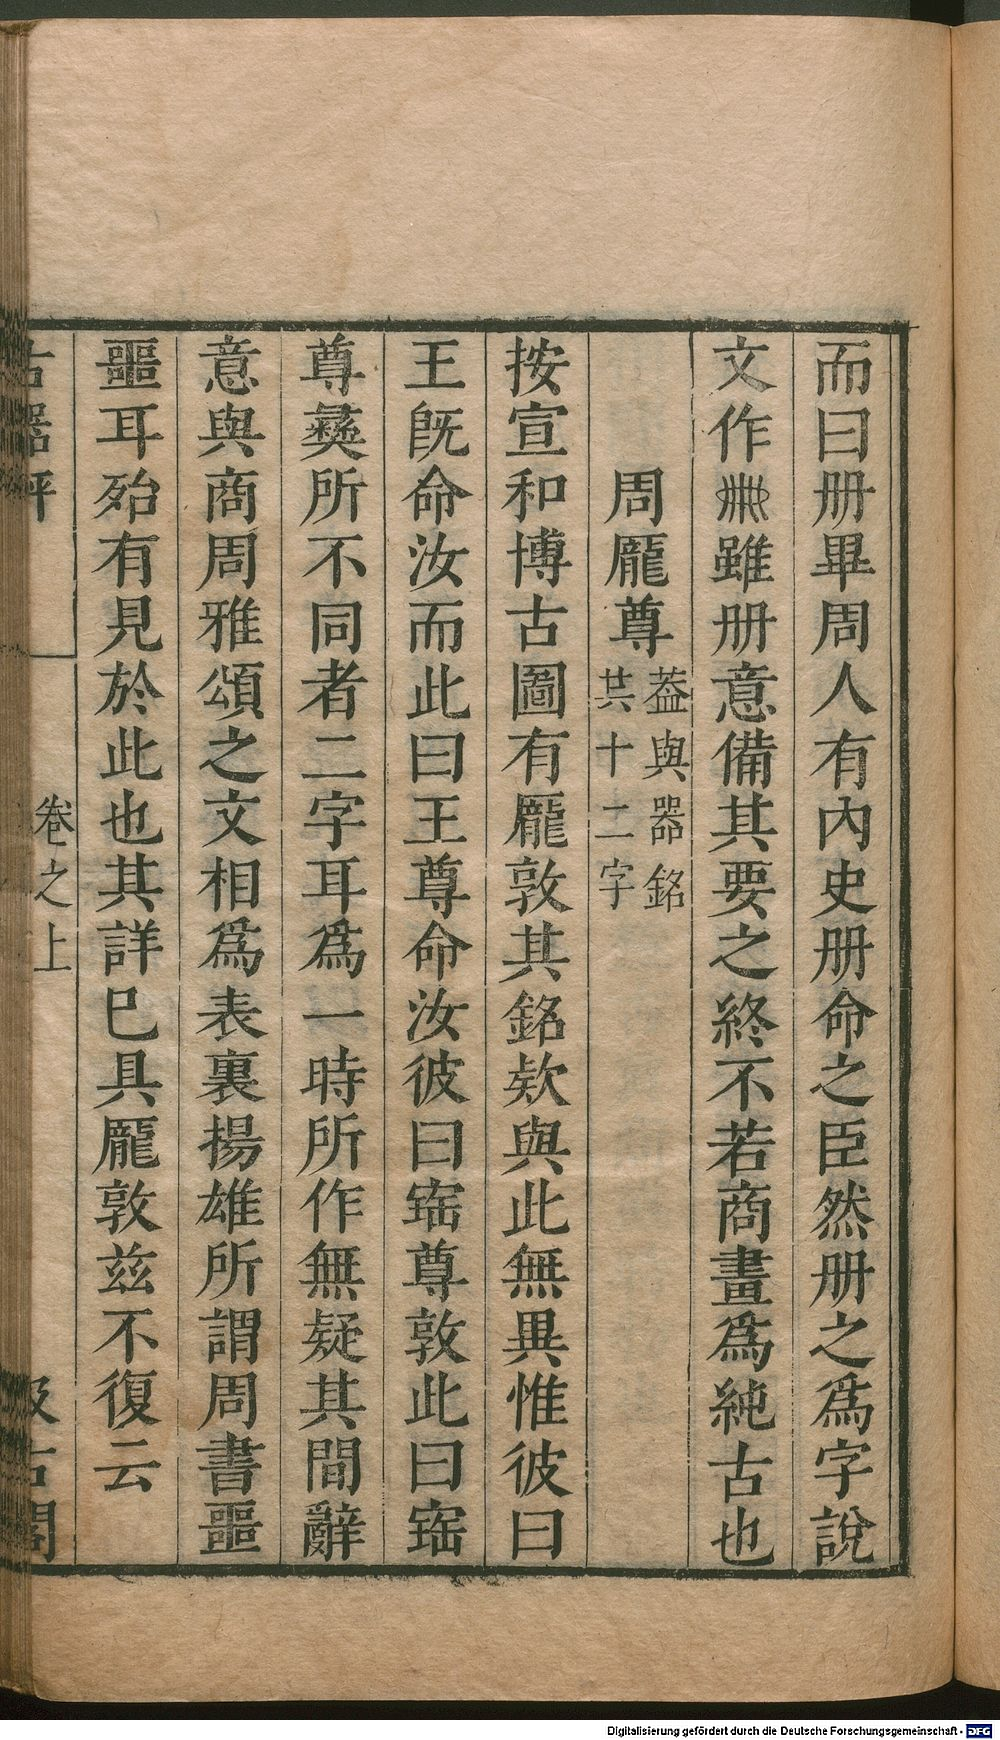 而曰册畢周人有內史册命之臣然册之爲字說
文作𠕋雖册意備其要之終不若商畫爲純古也
周龎尊 葢與器銘
共十二字
按宣和博古圖有龎敦其銘欵與此無異惟彼曰
王旣命汝而此曰王尊命汝彼曰𡩁尊敦此曰𡩁
尊彝所不同者二字耳爲一時所作無疑其間辭
意與商周雅頌之文相爲表裏揚雄所謂周書噩
噩耳殆有見於此也其詳巳具龎敦茲不復云
古器評 卷之上 汲古閣
Digitalisierung gefördert durch die Deutsche Forschungsgemeinschaft - DFG